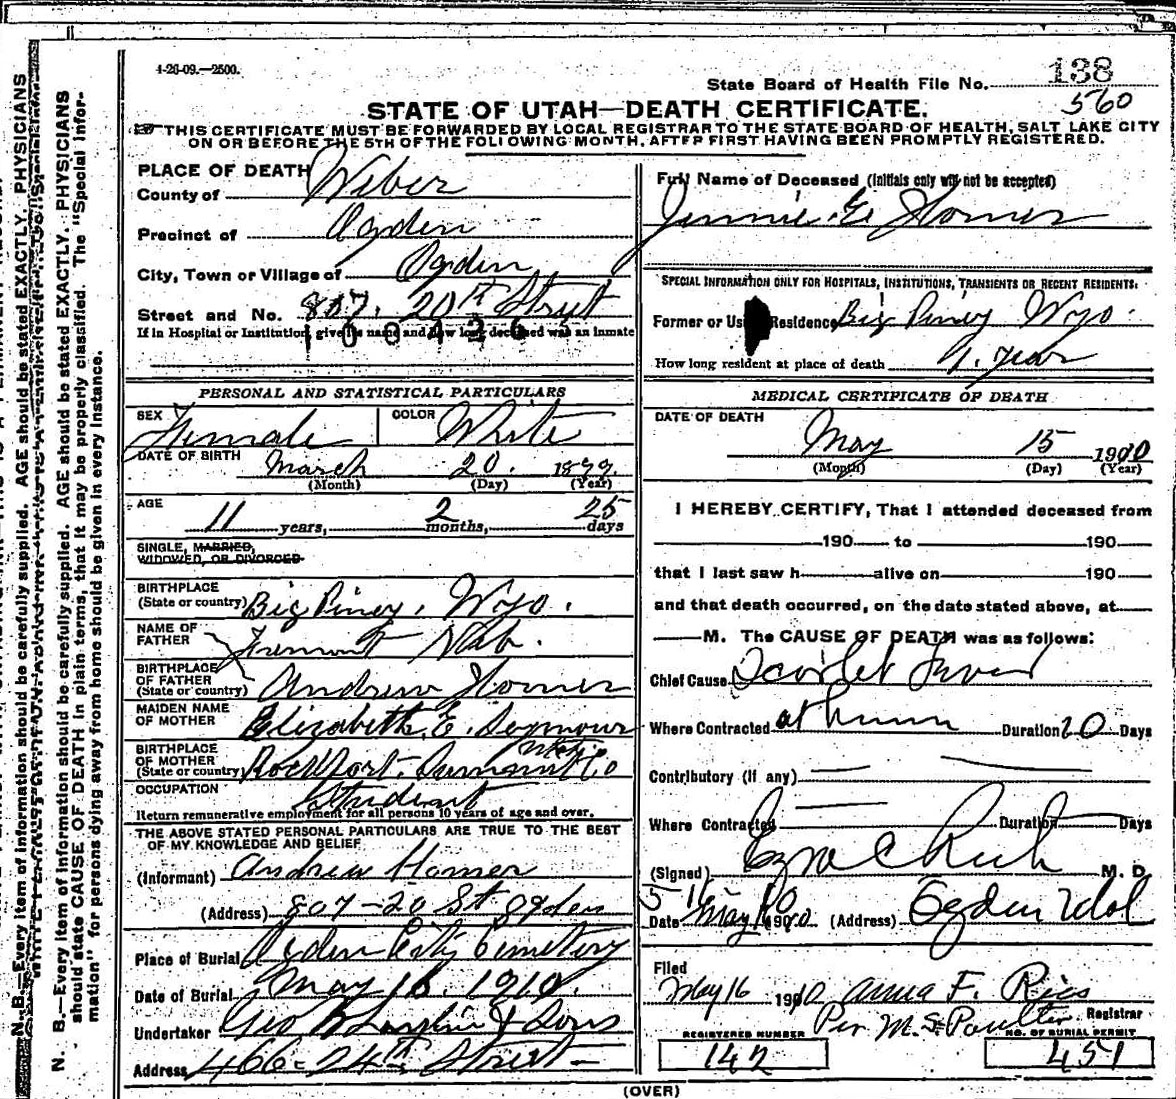 4-26-09.—2500.
State Board of Health File No. 138
560
STATE OF UTAH—DEATH CERTIFICATE.
THIS CERTIFICATE MUST BE FORWARDED BY LOCAL REGISTRAR TO THE STATE BOARD OF HEALTH, SALT LAKE CITY
ON OR BEFORE THE 5TH OF THE FOLLOWING MONTH, AFTER FIRST HAVING BEEN PROMPTLY REGISTERED.
PLACE OF DEATH
County of Weber
Precinct of Ogden
City, Town or Village of Ogden
Street and No. 807. 20th Street
If in Hospital or Institution, give its name and how long deceased was an inmate
Full Name of Deceased (Initials only will not be accepted)
Jennie E Homer
SPECIAL INFORMATION ONLY FOR HOSPITALS, INSTITUTIONS, TRANSIENTS OR RECENT RESIDENTS:
Former or Usual Residence Big Piney Wyo.
How long resident at place of death 1 year
PERSONAL AND STATISTICAL PARTICULARS
SEX Female COLOR White
DATE OF BIRTH March 20. 1899.
(Month) (Day) (Year)
AGE 11 years, 2 months, 25 days
SINGLE, MARRIED,
WIDOWED, OR DIVORCED
BIRTHPLACE
(State or country) Big Piney, Wyo.
NAME OF
FATHER Fremont Neb.
BIRTHPLACE
OF FATHER
(State or country) Andrew Homer
MAIDEN NAME
OF MOTHER Elizabeth E. Seymour
BIRTHPLACE
OF MOTHER
(State or country) Rockport. Summit Co
OCCUPATION Student
Return remunerative employment for all persons 10 years of age and over.
THE ABOVE STATED PERSONAL PARTICULARS ARE TRUE TO THE BEST
OF MY KNOWLEDGE AND BELIEF
(Informant) Andrew Homer
(Address) 807-20 St Ogden
Place of Burial Ogden City Cemetery
Date of Burial May 16. 1910.
Undertaker Geo & Sons
Address 466-24th Street
MEDICAL CERTIFICATE OF DEATH
DATE OF DEATH
May 15 1910
(Month) (Day) (Year)
I HEREBY CERTIFY, That I attended deceased from
190 to 190
that I last saw h alive on 190
and that death occurred, on the date stated above, at
M. The CAUSE OF DEATH was as follows:
Chief Cause Scarlet Fever
Where Contracted at home Duration 20 Days
Contributory (If any)
Where Contracted Duration Days
(Signed) Ezra C Rich M. D.
Date May 16 1910 (Address) Ogden Utah
Filed
May 16 1910 Anna F. Rics
Per M. S. Poulter Registrar
REGISTERED NUMBER NO. OF BURIAL PERMIT
142 451
(OVER)
N. B.—Every item of information should be carefully supplied. AGE should be stated EXACTLY. PHYSICIANS
should state CAUSE OF DEATH in plain terms, that it may be properly classified. The "Special Infor-
mation" for persons dying away from home should be given in every instance.
N. B.—Every item of information should be carefully supplied. AGE should be stated EXACTLY. PHYSICIANS